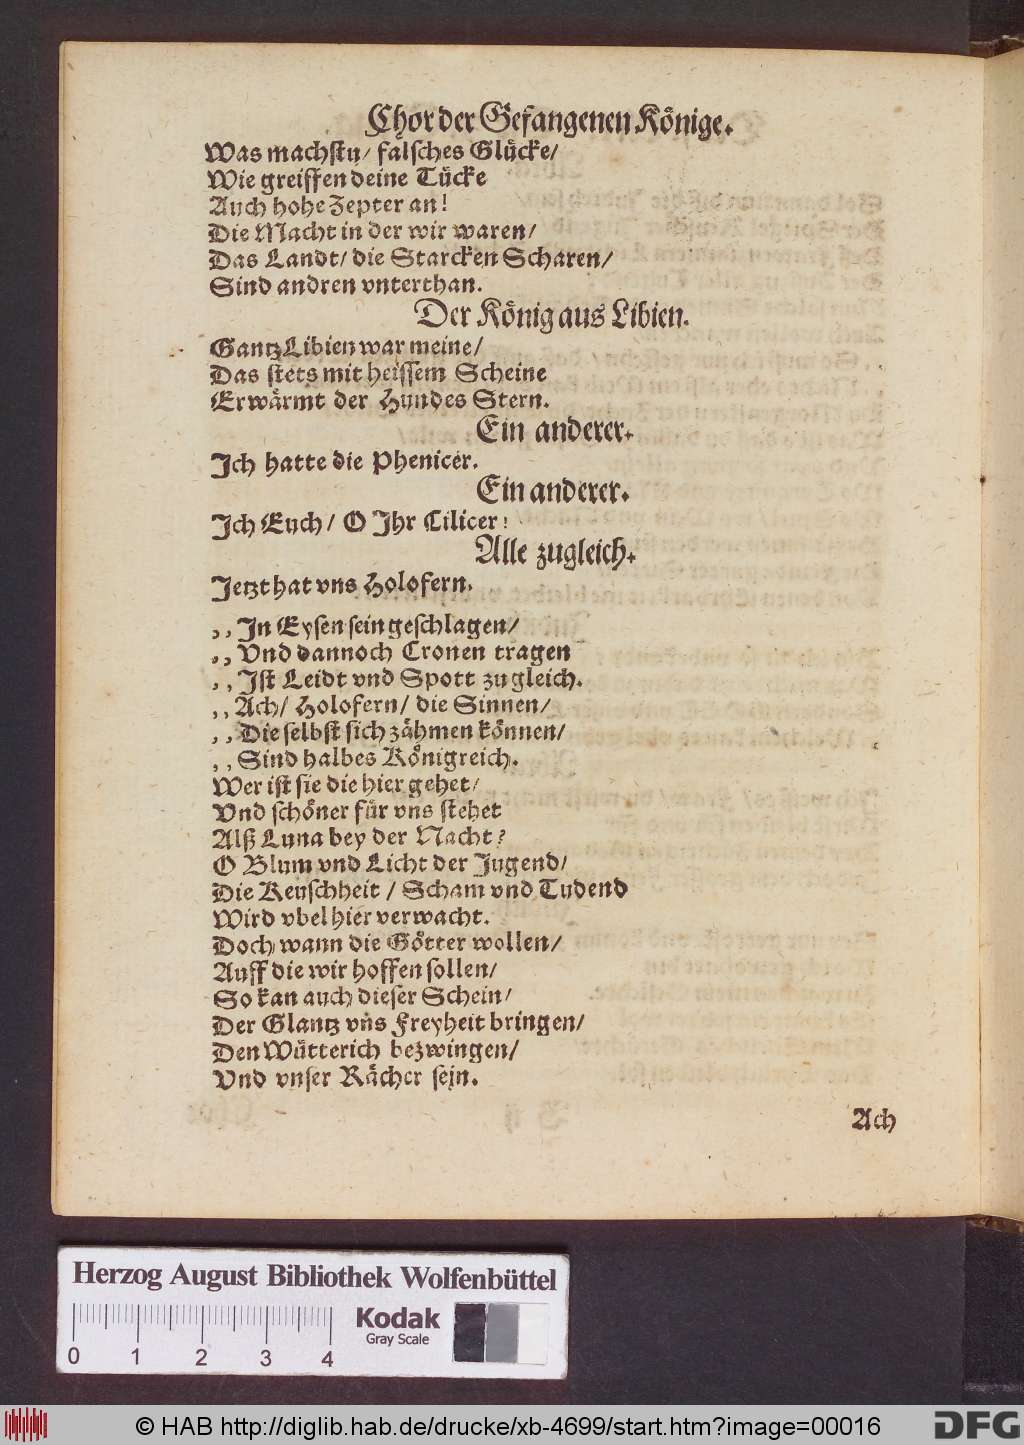 Chor der Gefangenen Könige.
Was machstu/ falsches Glücke/
Wie greiffen deine Tücke
Auch hohe Zepter an!
Die Macht in der wir waren/
Das Landt/ die Starcken Scharen/
Sind andren vnterthan.
Der König aus Libien.
Gantz Libien war meine/
Das stets mit heissem Scheine
Erwärmt der Hundes Stern.
Ein anderer.
Ich hatte die Phenicer.
Ein anderer.
Ich Euch/ O Ihr Cilicer!
Alle zugleich.
Jetzt hat vns Holofern.
,,In Eysen sein geschlagen/
,,Vnd dannoch Cronen tragen
,,Ist Leidt vnd Spott zugleich.
,,Ach/ Holofern/ die Sinnen/
,,Die selbst sich zähmen können/
,,Sind halbes Königreich.
Wer ist sie die hier gehet/
Vnd schöner für vns stehet
Alß Luna bey der Nacht?
O Blum vnd Licht der Jugend/
Die Keuschheit/ Scham vnd Tudend
Wird vbel hier verwacht.
Doch wann die Götter wollen/
Auff die wir hoffen sollen/
So kan auch dieser Schein/
Der Glantz vns Freyheit bringen/
Den Wütterich bezwingen/
Vnd vnser Rächer sein.
Ach
Herzog August Bibliothek Wolfenbüttel
Kodak
Gray Scale
0 1 2 3 4
© HAB http://diglib.hab.de/drucke/xb-4699/start.htm?image=00016
DFG